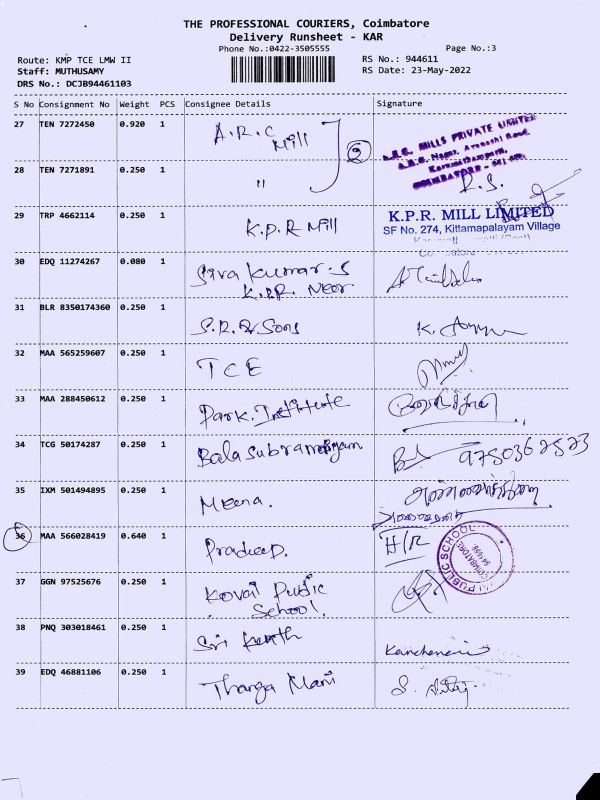 THE PROFESSIONAL COURIERS, Coimbatore
Delivery Runsheet - KAR
Phone No.:0422-3505555
Page No.:3
Route: KMP TCE LMW II
RS No.: 944611
Staff: MUTHUSAMY
RS Date: 23-May-2022
DRS No.: DCJB94461103
S No Consignment No Weight PCS Consignee Details Signature
27 TEN 7272450 0.920 1 A.R.C Mill
A.R.C. MILLS PRIVATE LIMITED
COIMBATORE
28 TEN 7271891 0.250 1 "
R.S.
29 TRP 4662114 0.250 1 K.P.R Mill
K.P.R. MILL LIMITED
SF No. 274, Kittamapalayam Village
30 EDQ 11274267 0.080 1 Siva Kumar.S
K.P.R. Near
31 BLR 8350174360 0.250 1 S.R. & Sons K.
32 MAA 565259607 0.250 1 TCE
33 MAA 288450612 0.250 1 Park. Institute
34 TCG 50174287 0.250 1 Bala Subramaniyam 9750362573
35 IXM 501494895 0.250 1 Meena.
36 MAA 566028419 0.640 1 Pradeep. H/R
PUBLIC SCHOOL
COIMBATORE
37 GGN 97525676 0.250 1 Kovai Public
School.
38 PNQ 303018461 0.250 1 Sri Kanth
39 EDQ 46881106 0.250 1 Thanga Mani S.